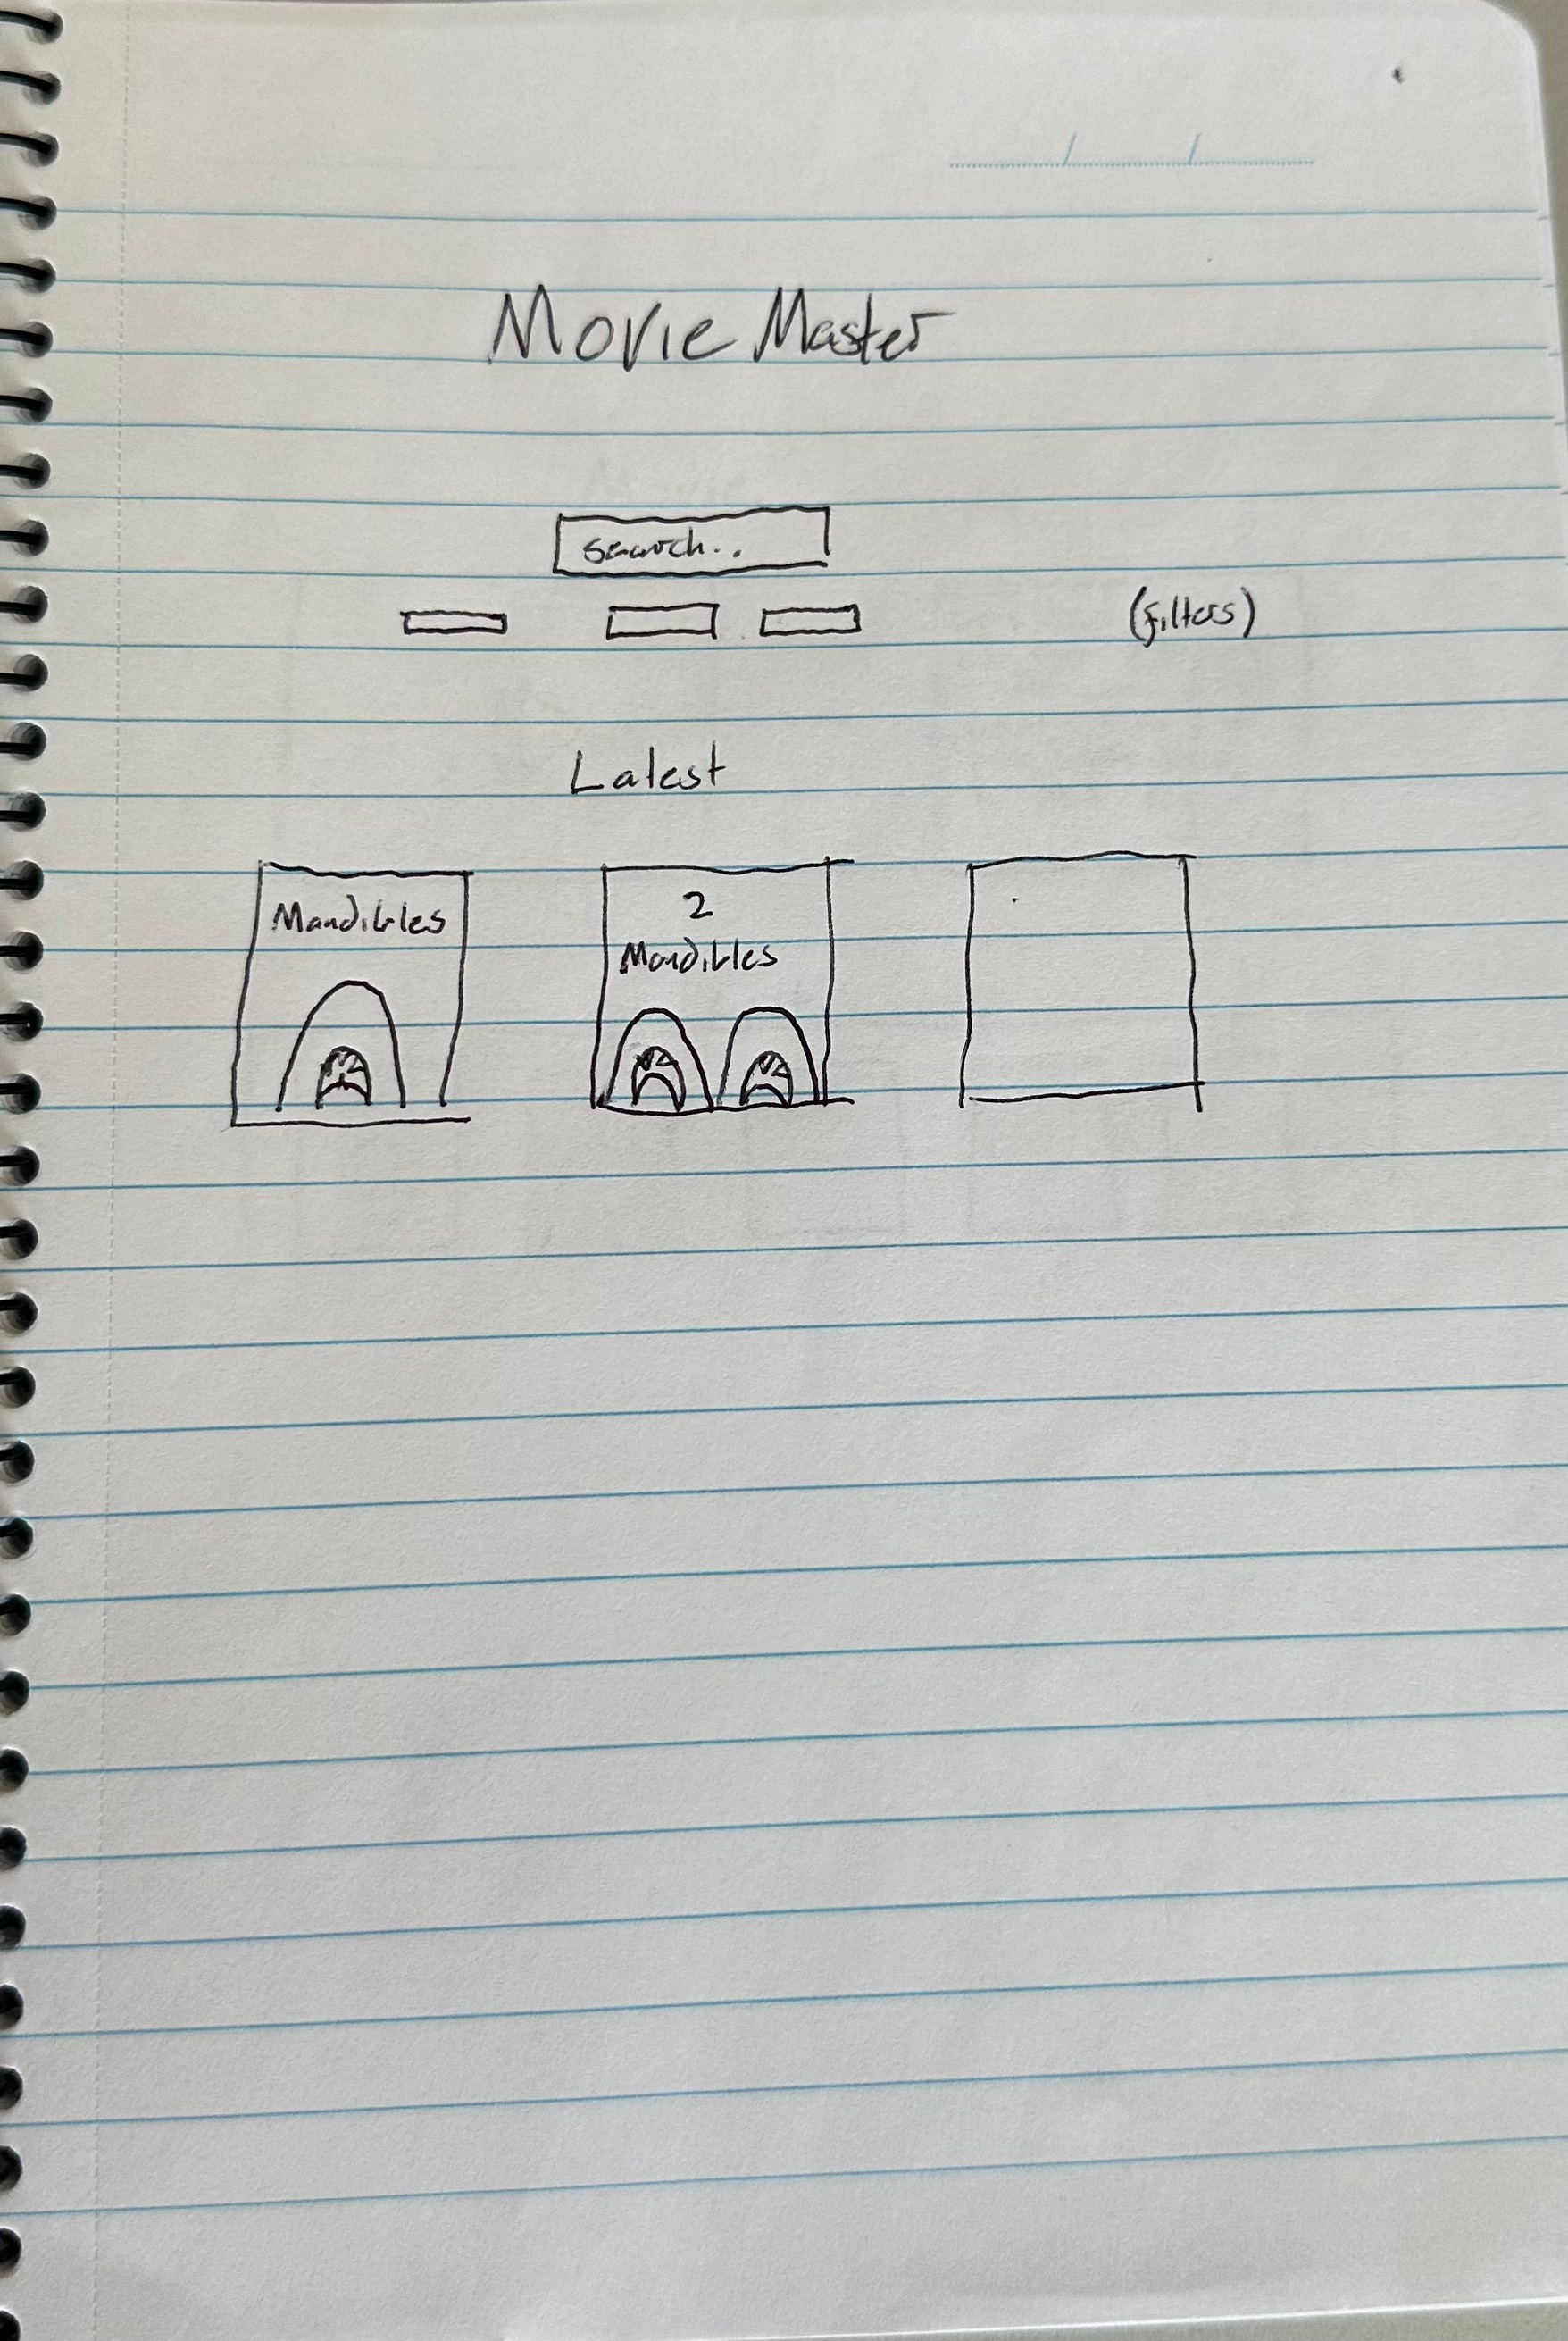 Movie Master
search..
(filters)
Latest
Mandibles
2
Mandibles